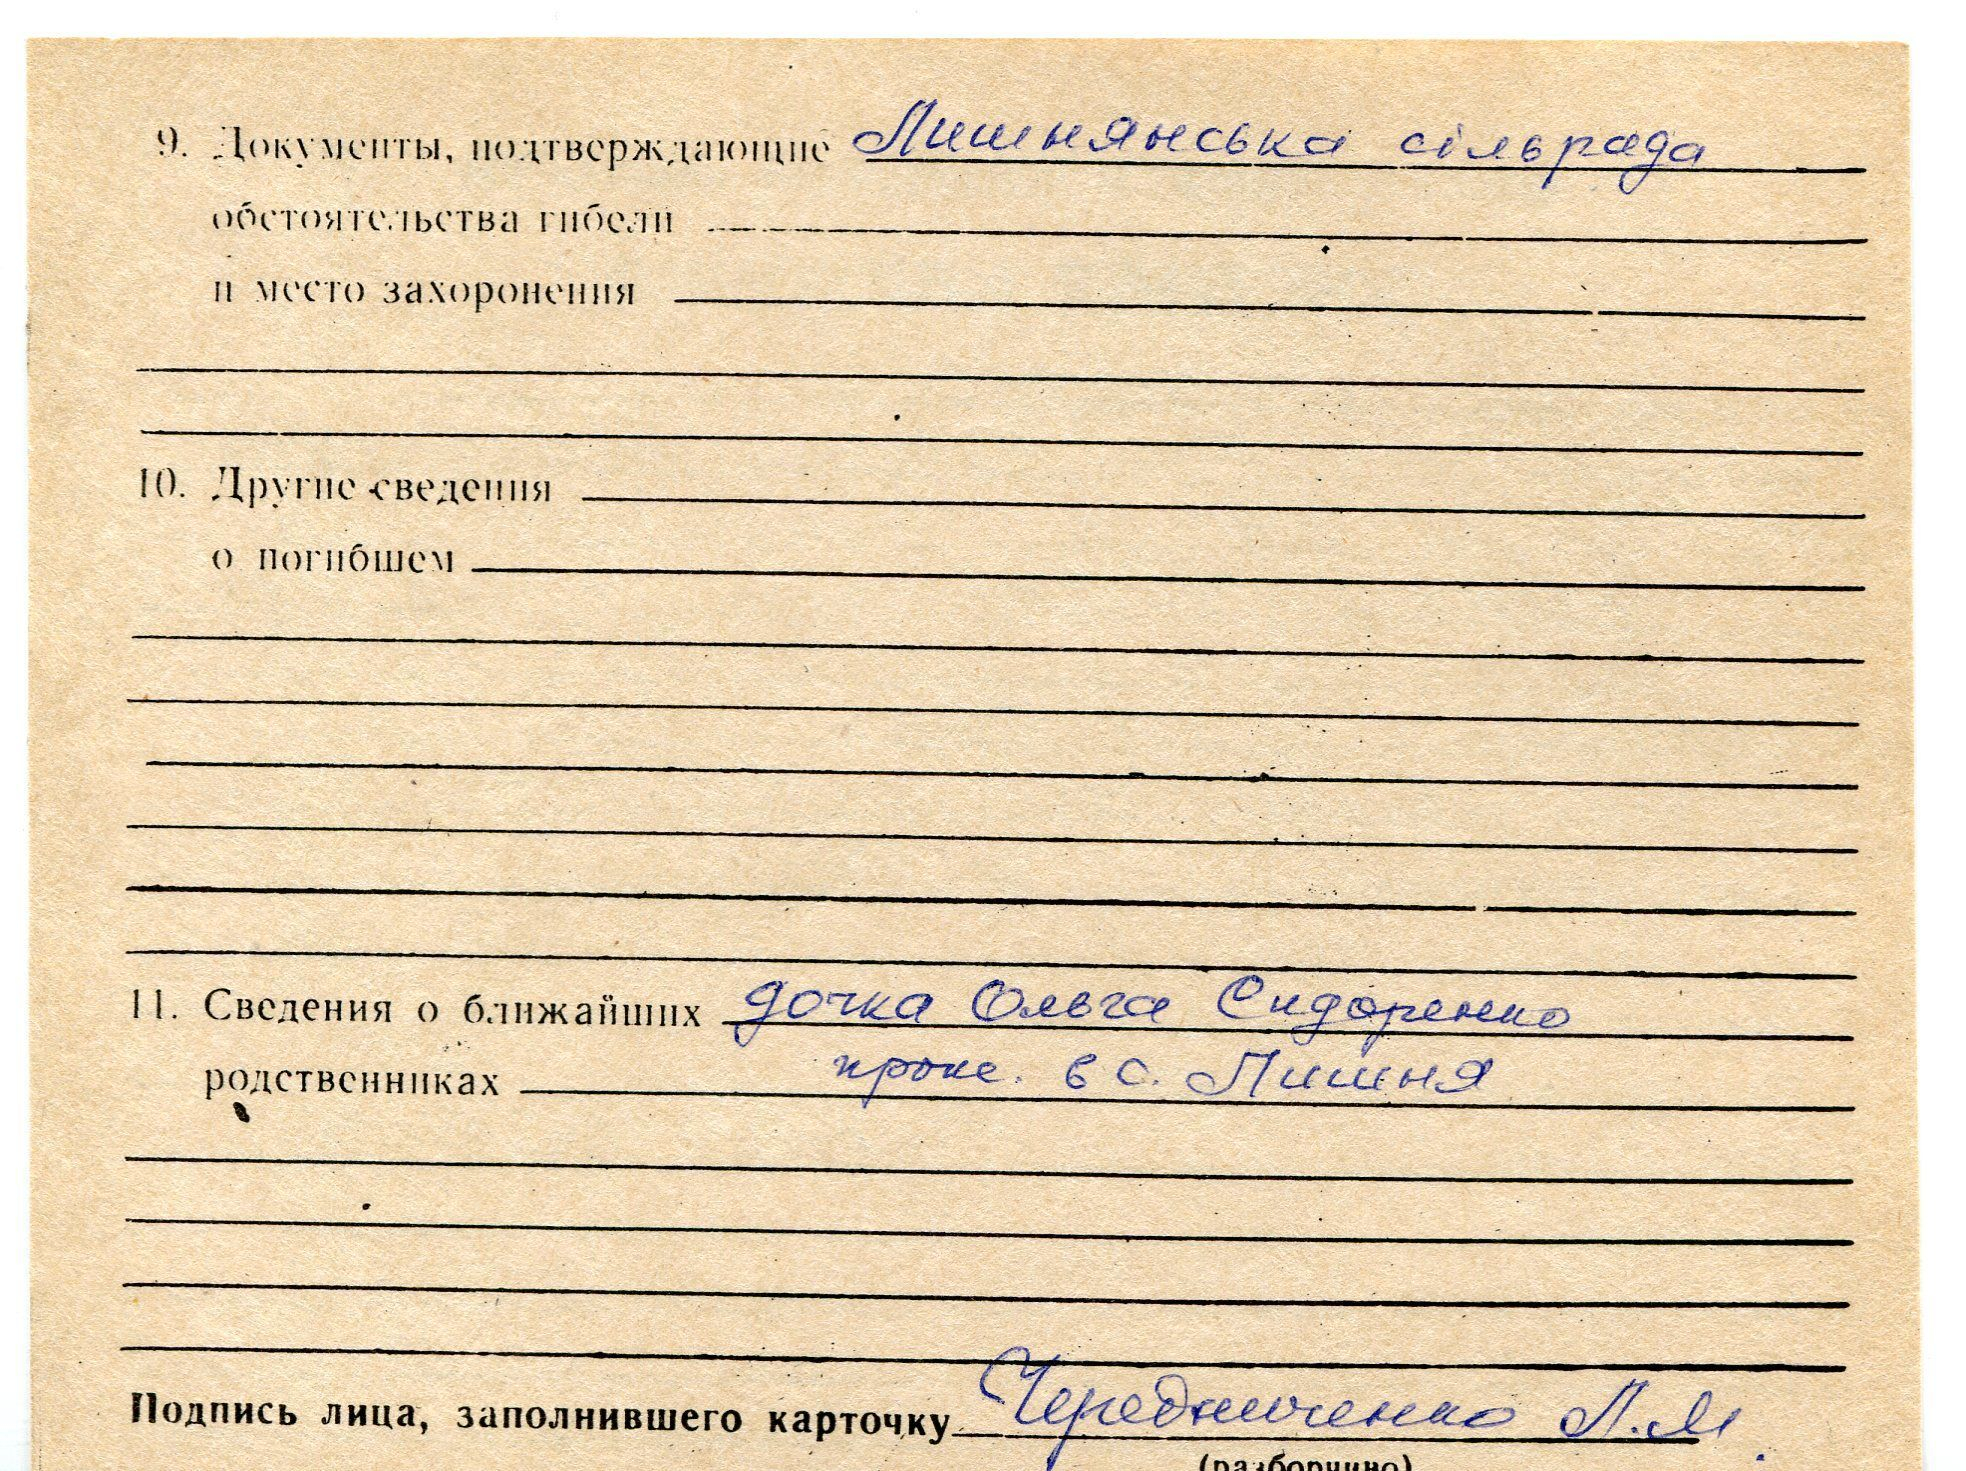 9. Документы, подтверждающие Лишнянська сільрада
обстоятельства гибели
и место захоронения
10. Другие сведения
о погибшем
11. Сведения о ближайших дочка Ольга Сидоренко
родственниках прож. в с. Лишня
Подпись лица, заполнившего карточку Чередниченко Л.М.
(разборчиво)